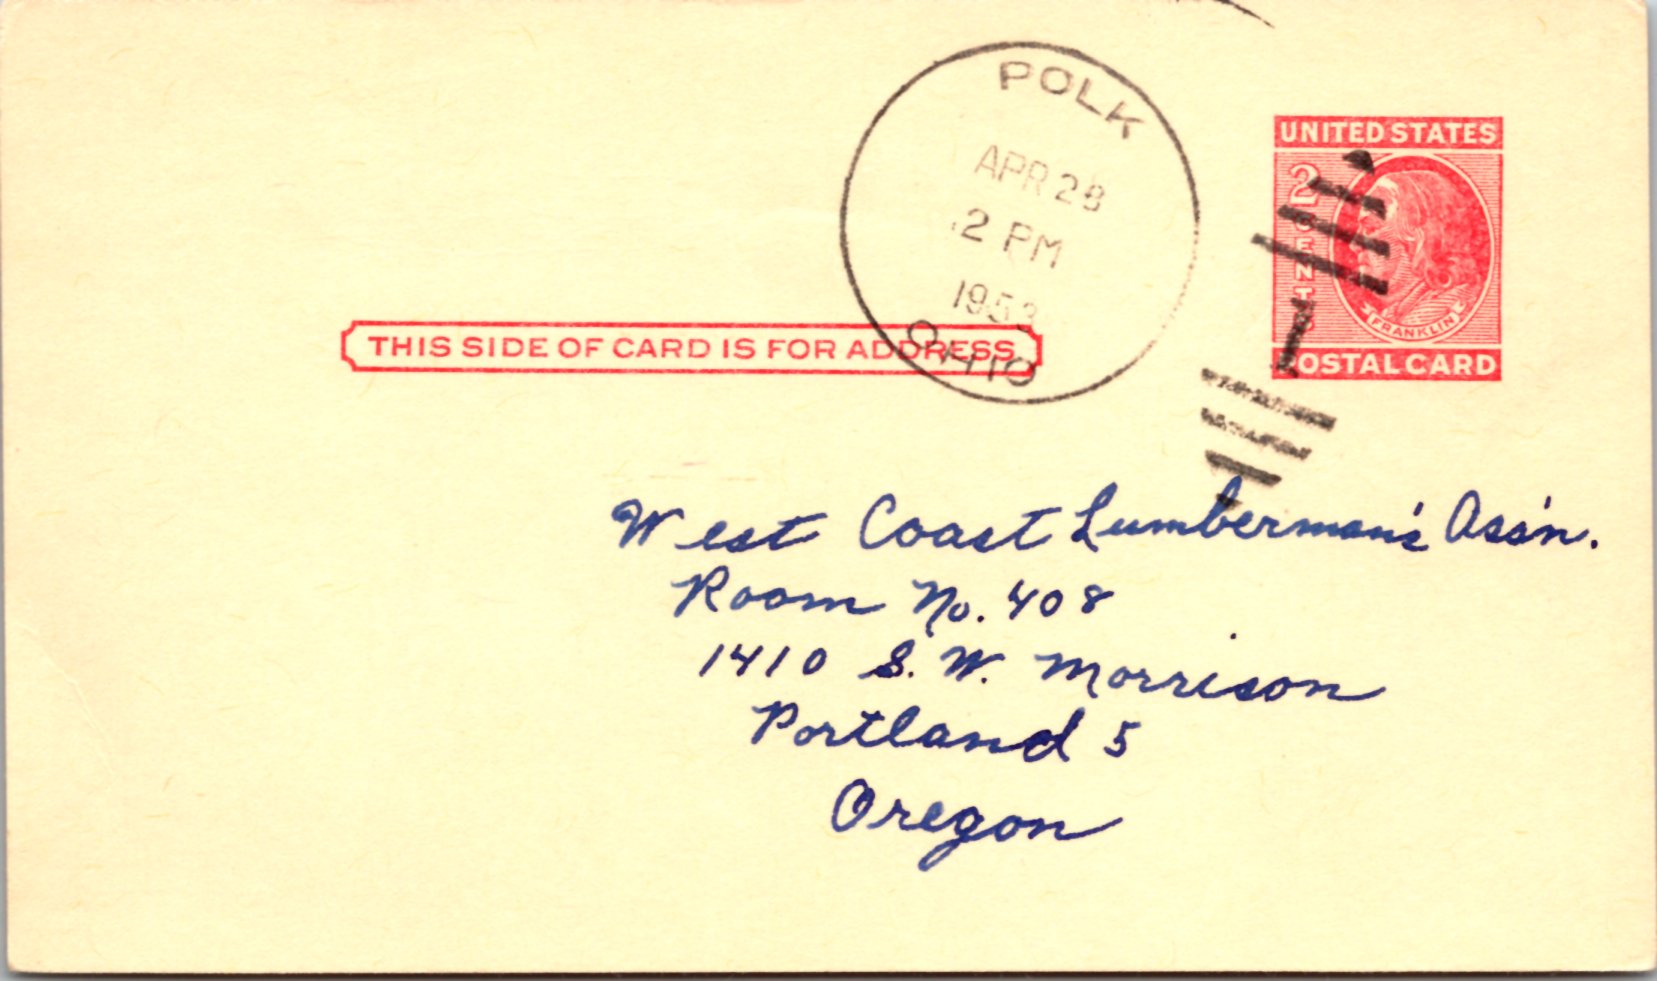 POLK
APR 28
2 PM
1953
OHIO
UNITED STATES
2 CENTS
FRANKLIN
POSTAL CARD
THIS SIDE OF CARD IS FOR ADDRESS
West Coast Lumberman's Ass'n.
Room No. 408
1410 S. W. Morrison
Portland 5
Oregon